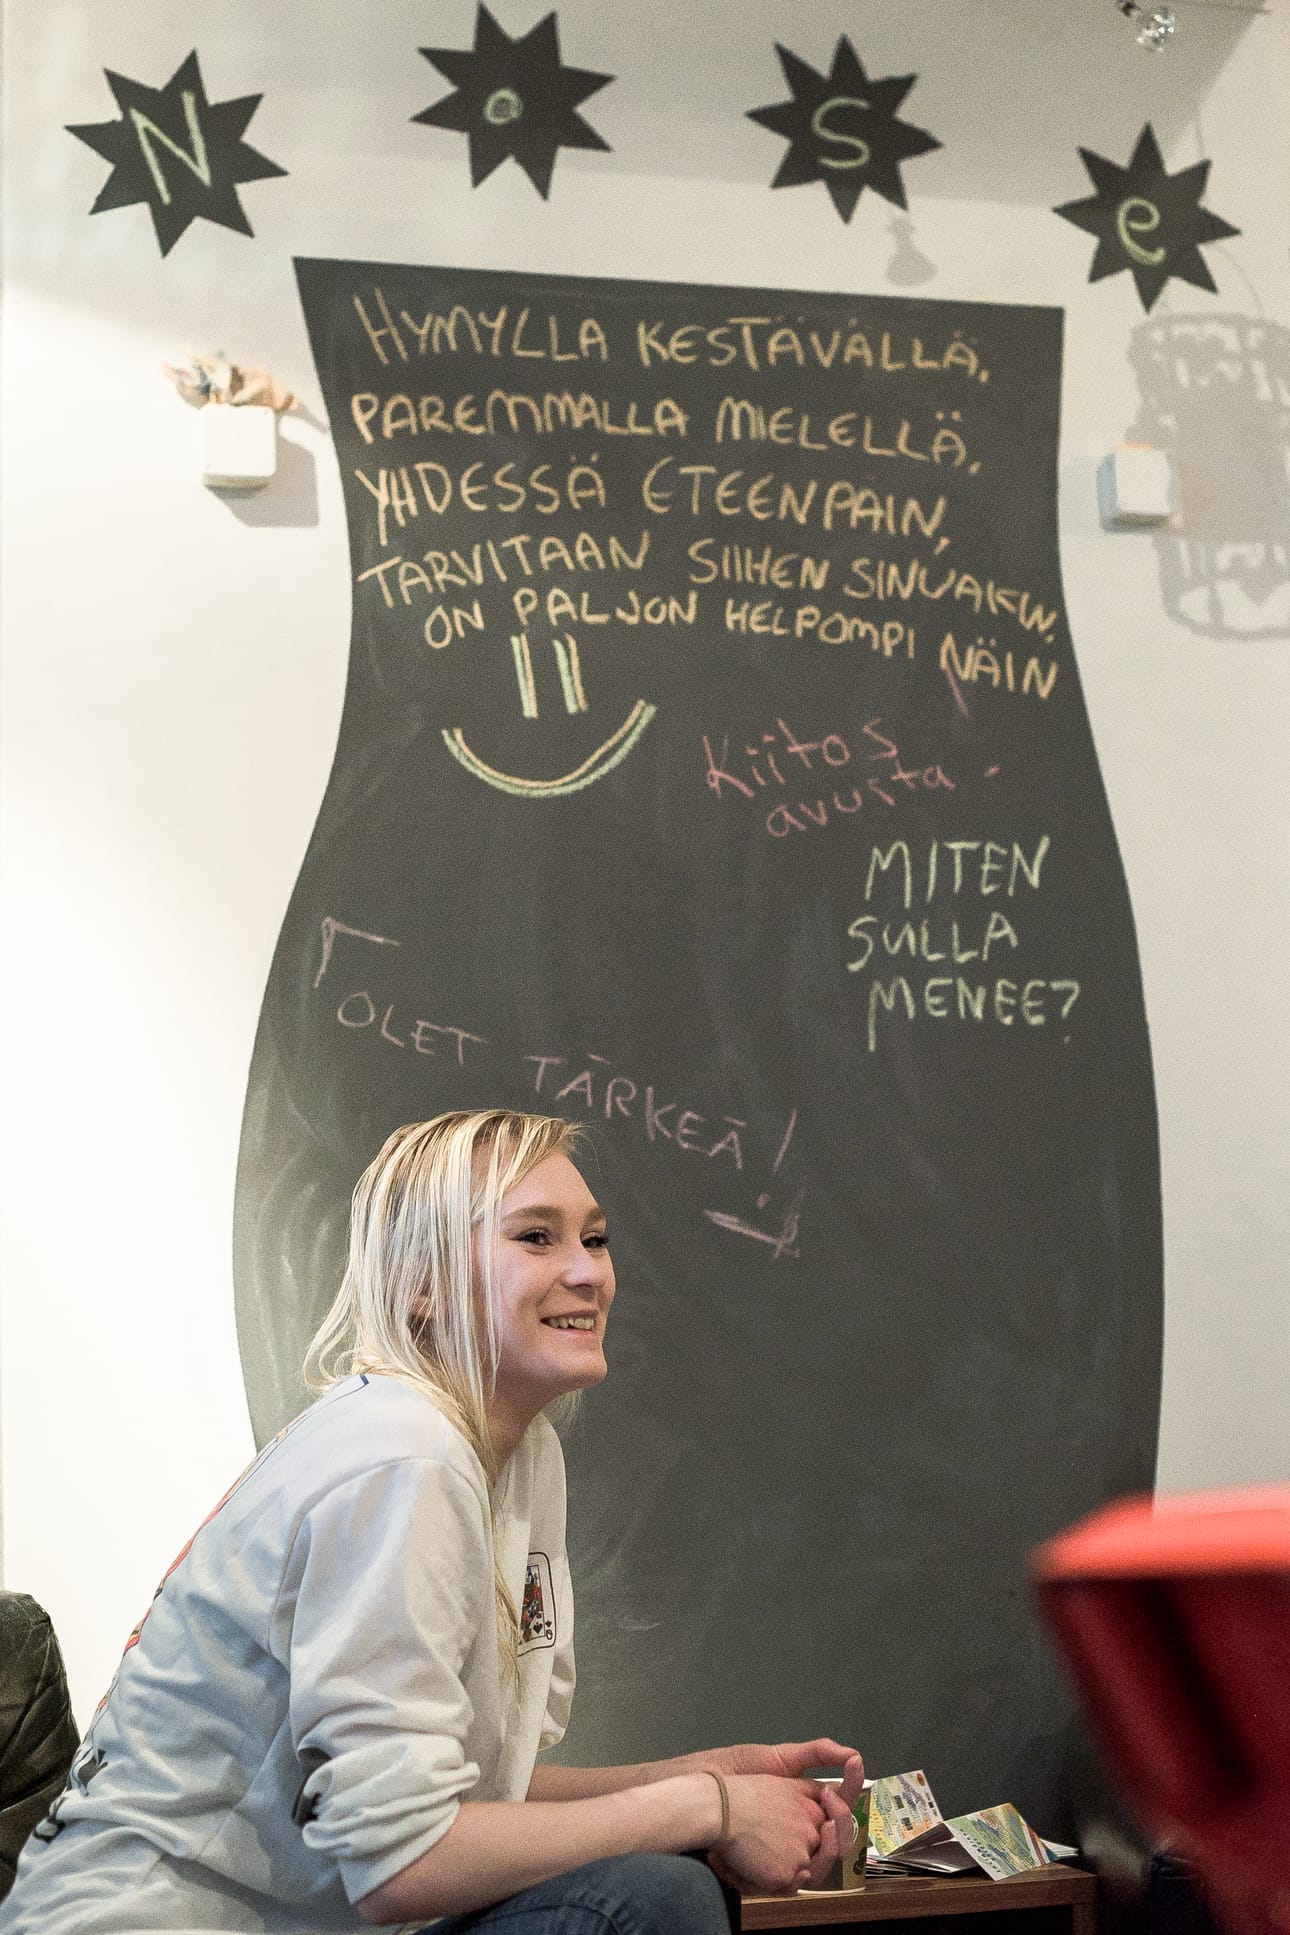 N o S e
HYMYLLÄ KESTÄVÄLLÄ,
PAREMMALLA MIELELLÄ,
YHDESSÄ ETEENPÄIN,
TARVITAAN SIIHEN SINUAKIN,
ON PALJON HELPOMPI NÄIN
Kiitos
avusta -
MITEN
SULLA
MENEE?
OLET TÄRKEÄ!
Q